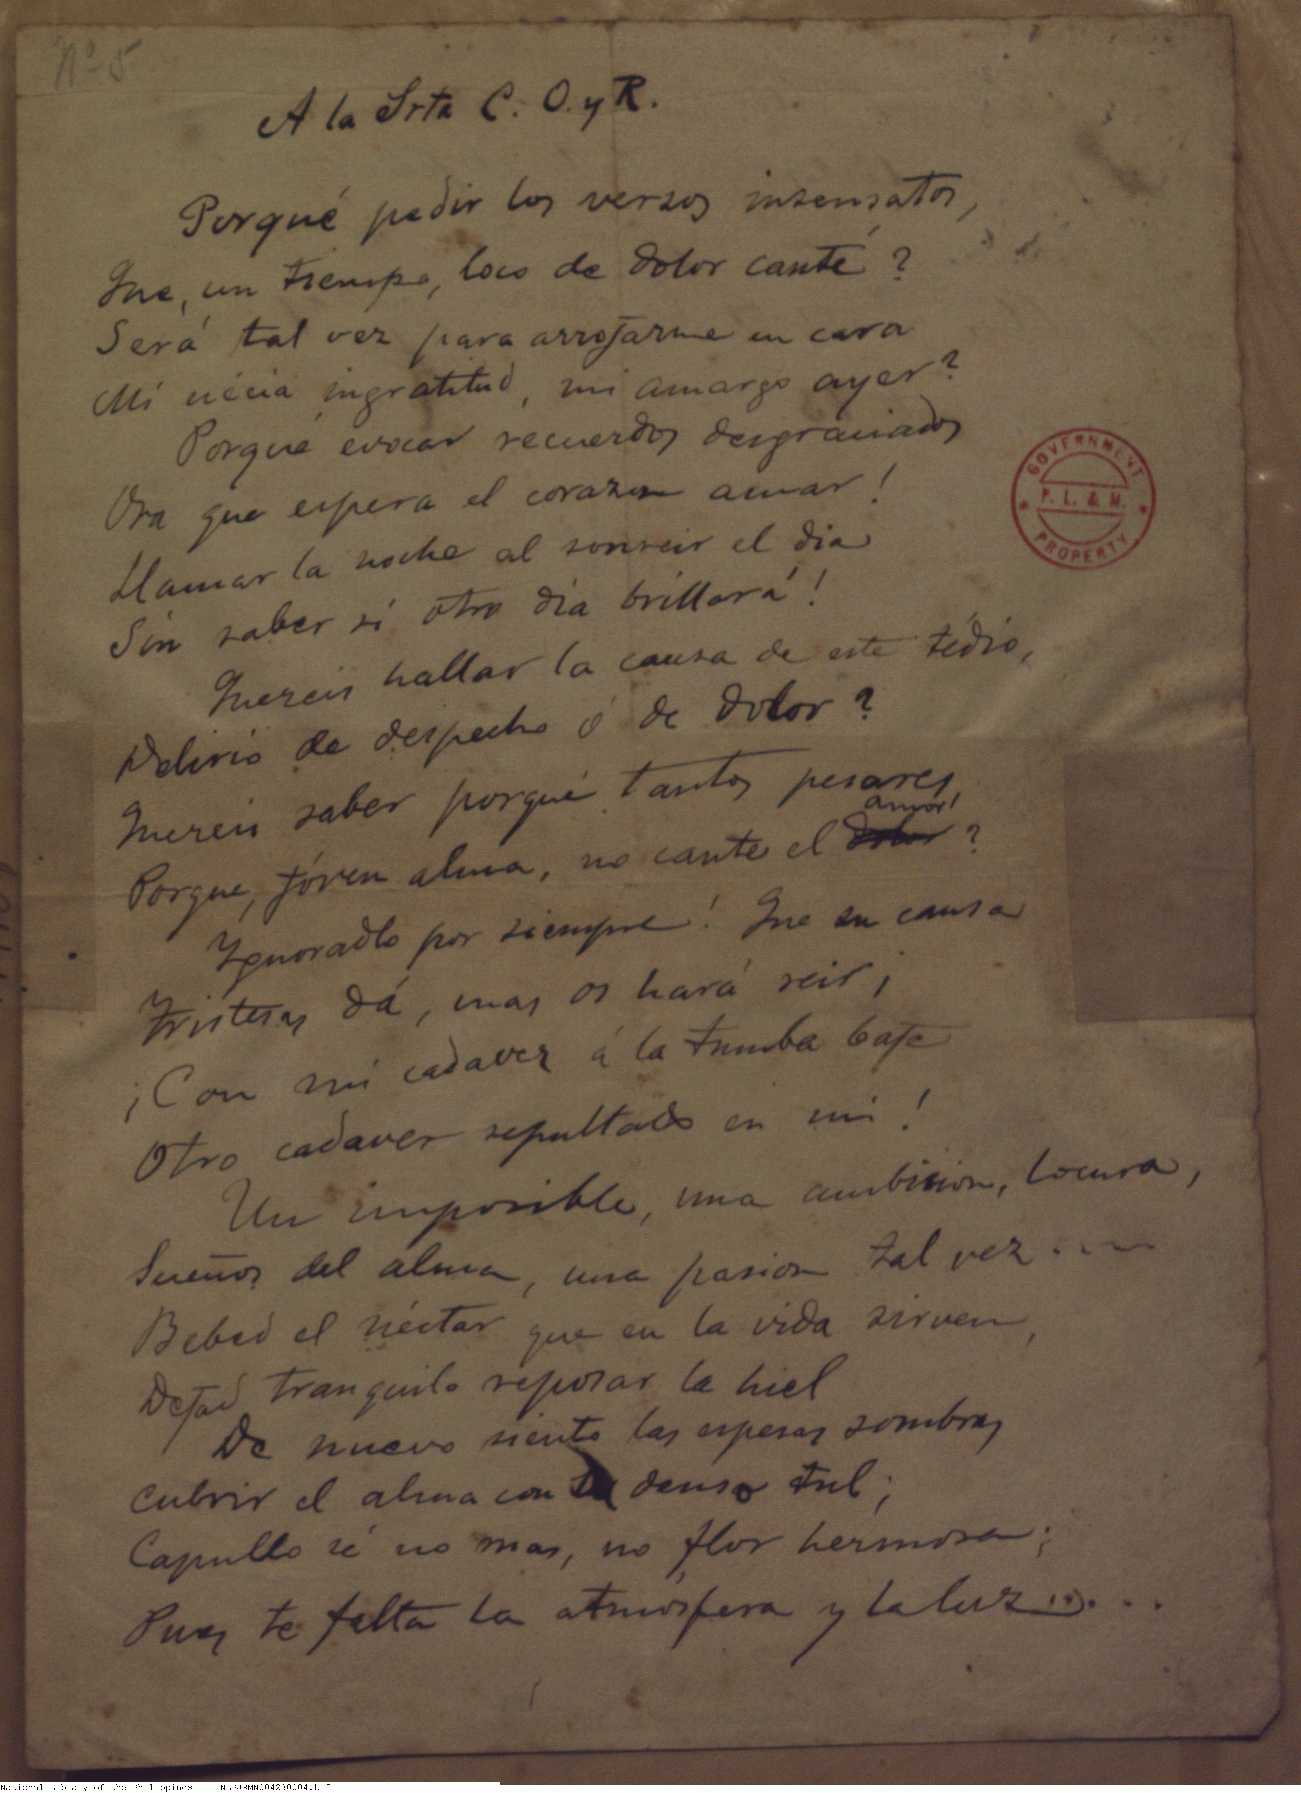 Nº 5
A la Srta C. O. y R.
Porqué pedir los versos insensatos,
Que, un tiempo, loco de dolor canté?
Será tal vez para arrojarme en cara
Mi nécia ingratitud, mi amargo ayer?
Porqué evocar recuerdos desgraciados
Ora que espera el corazon amar!
Llamar la noche al sonreir el dia
Sin saber si otro dia brillará!
Quereis hallar la causa de este tédio,
Delirio de despecho ó de dolor?
Quereis saber porqué tantos pesares,
amor!
Porque, jóven alma, no cante el dolor?
Ignoradlo por siempre! Que su causa
Tristezas dá, mas os hará reir;
¡Con mi cadaver á la tumba baje
Otro cadaver sepultado en mi!
Un imposible, una ambicion, locura,
Sueños del alma, una pasion tal vez....
Bebed el néctar que en la vida sirven,
Dejad tranquilo reposar la hiel
De nuevo siento las espesas sombras
Cubrir el alma con denso tul;
Capullo sé no mas, no flor hermosa;
Pues te falta la atmósfera y la luz.....
GOVERNMENT
P. L. & M.
PROPERTY
National Library of the Philippines